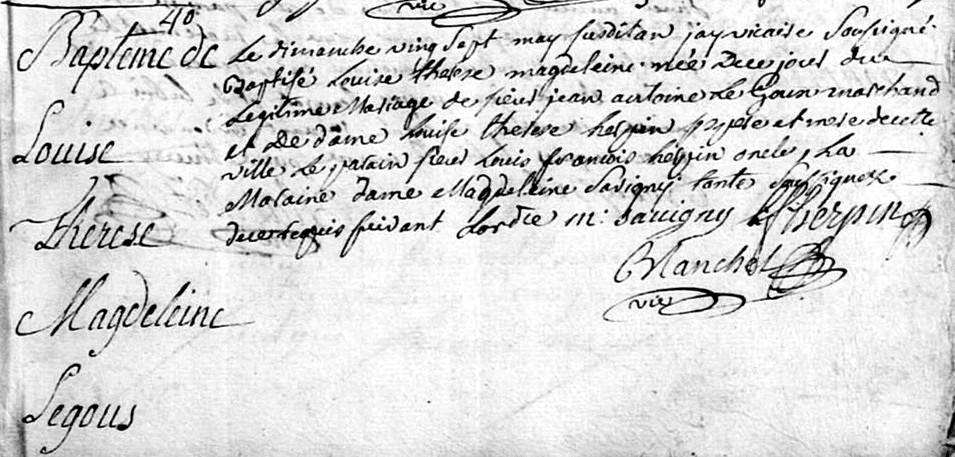 vic
40
Bapteme de
Louise
Therese
Magdeleine
Segous
Le dimanche vingt sept may susdit an jay vicaise soussigné
Baptisé Louise therese magdeleine née Dece jour du
Legitime Mariage de sieur jean antoine Le Goun marchand
et De dame louise therese herpin pere et mere de cette
ville Le parain sieur Louis francois herpin oncle, La
Maraine dame Magdeleine Savigny tante soussignez
de ce requis suivant Lordre m: Savigny Herpin
Blanchet
vic